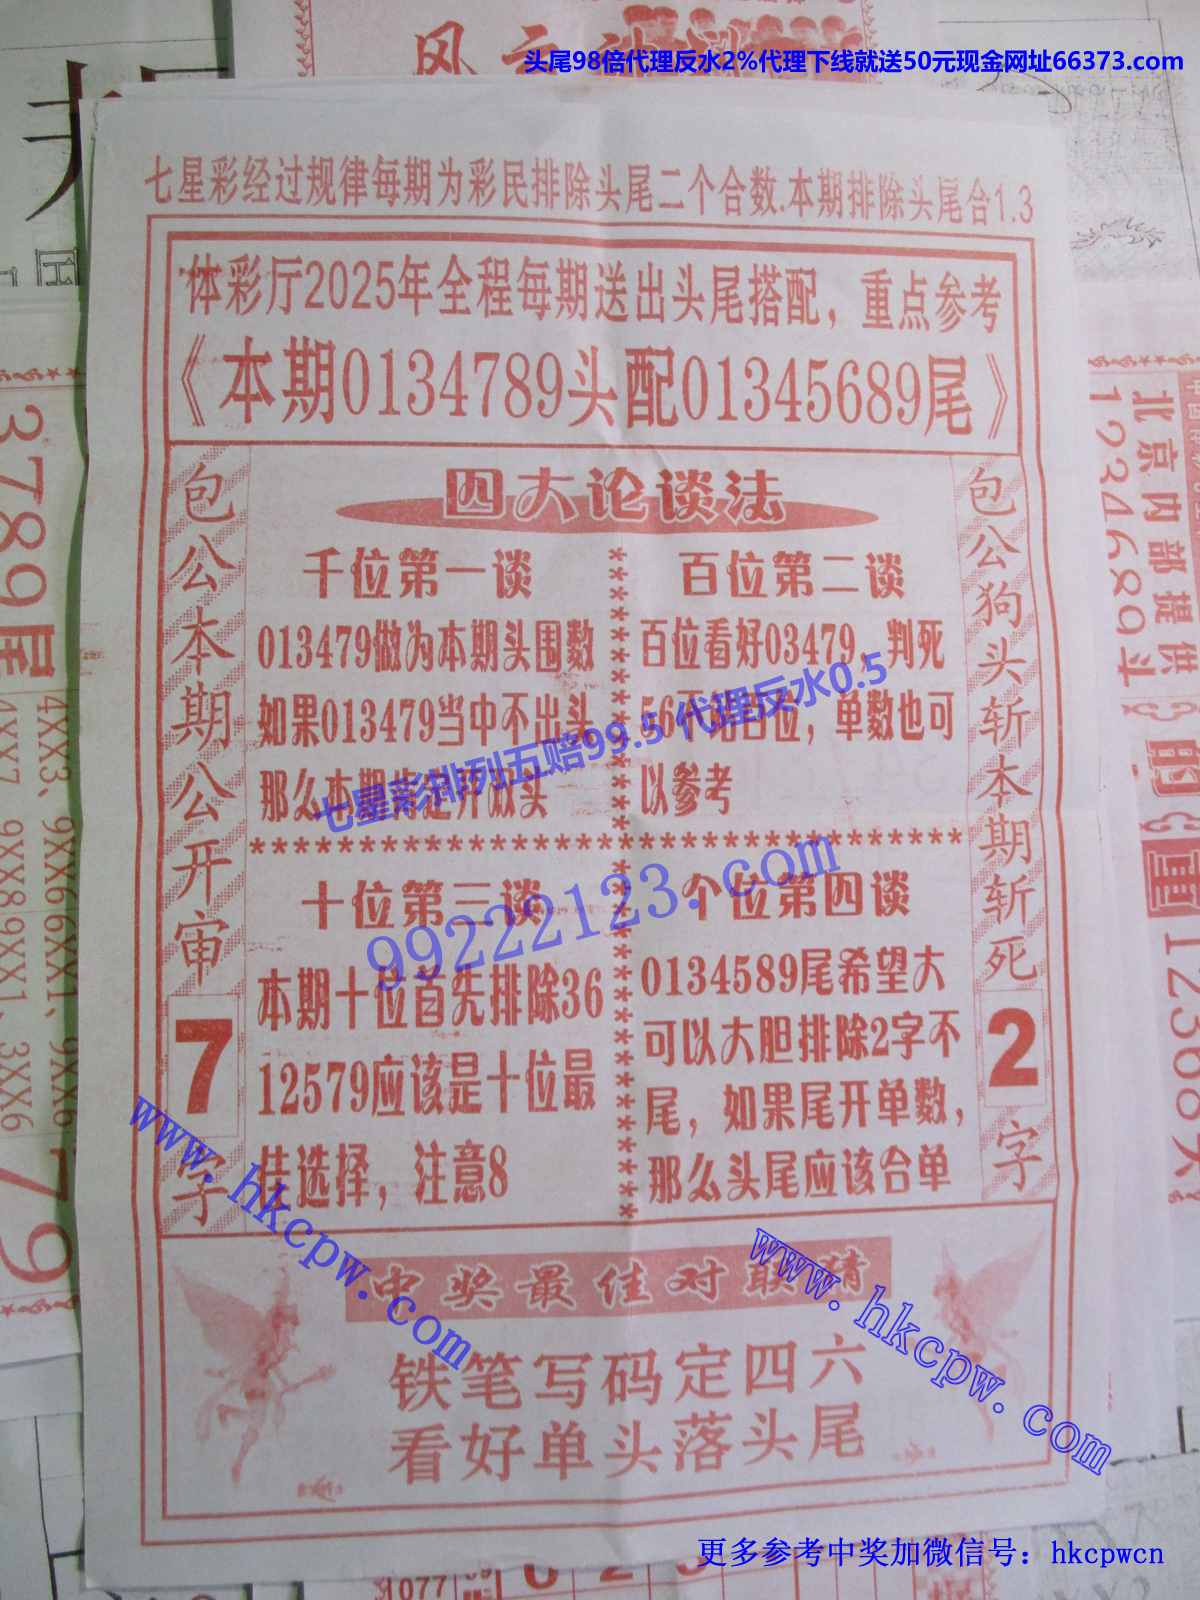 头尾98倍代理反水2%代理下线就送50元现金网址66373.com
七星彩经过规律每期为彩民排除头尾二个合数.本期排除头尾合1.3
体彩厅2025年全程每期送出头尾搭配，重点参考
《本期0134789头配01345689尾》
包公本期公开审7字
四大论谈法
千位第一谈
013479做为本期头围数
如果013479当中不出头
那么本期肯定开双头
百位第二谈
百位看好03479，判死
56不站百位，单数也可
以参考
十位第三谈
本期十位首先排除36
12579应该是十位最
佳选择，注意8
个位第四谈
0134589尾希望大
可以大胆排除2字不
尾，如果尾开单数，
那么头尾应该合单
包公狗头斩本期斩死2字
七星彩排列五赔99.5 代理反水0.5
99222123.com
中奖最佳对联猜
铁笔写码定四六
看好单头落头尾
www.hkcpw.com
www.hkcpw.com
更多参考中奖加微信号：hkcpwcn
3789尾
4XX3、9XX6
4XX7
北京内部提供
1234689斗
1077